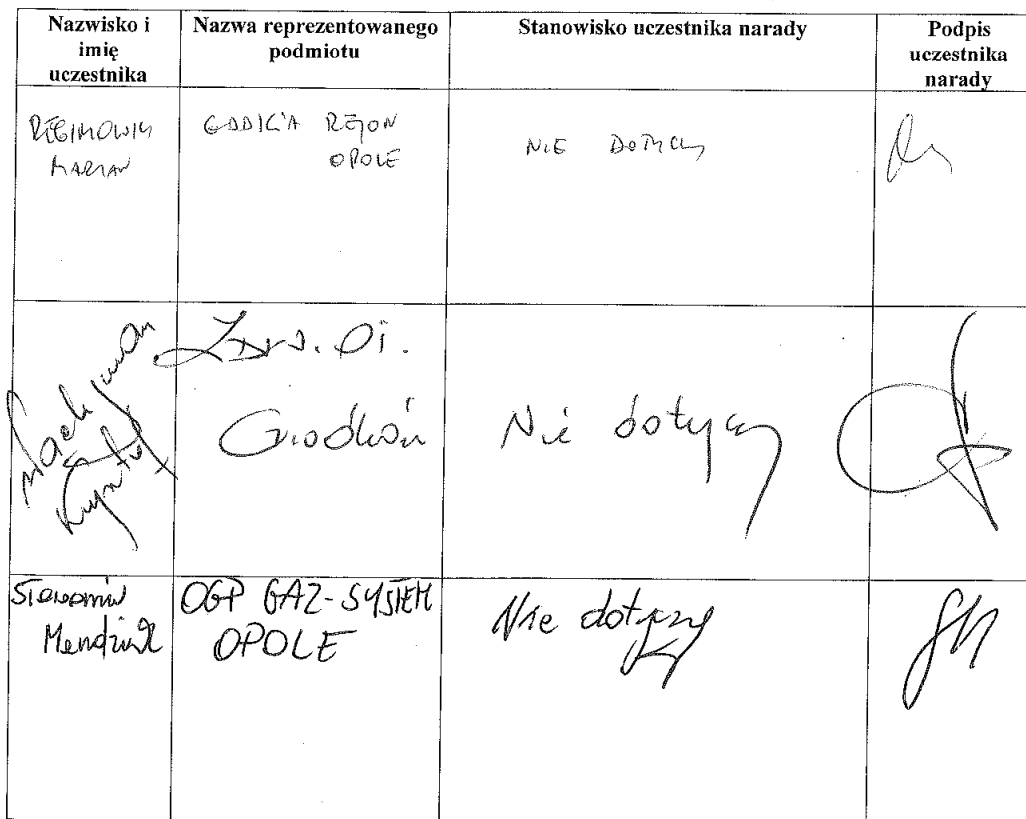 Nazwisko i
imię
uczestnika
Nazwa reprezentowanego
podmiotu
Stanowisko uczestnika narady
Podpis
uczestnika
narady
MARIAN
GDDKiA REJON
OPOLE
NIE DOTYCZY
Grodków
Nie dotyczy
Sławomir
OGP GAZ-SYSTEM
OPOLE
Nie dotyczy